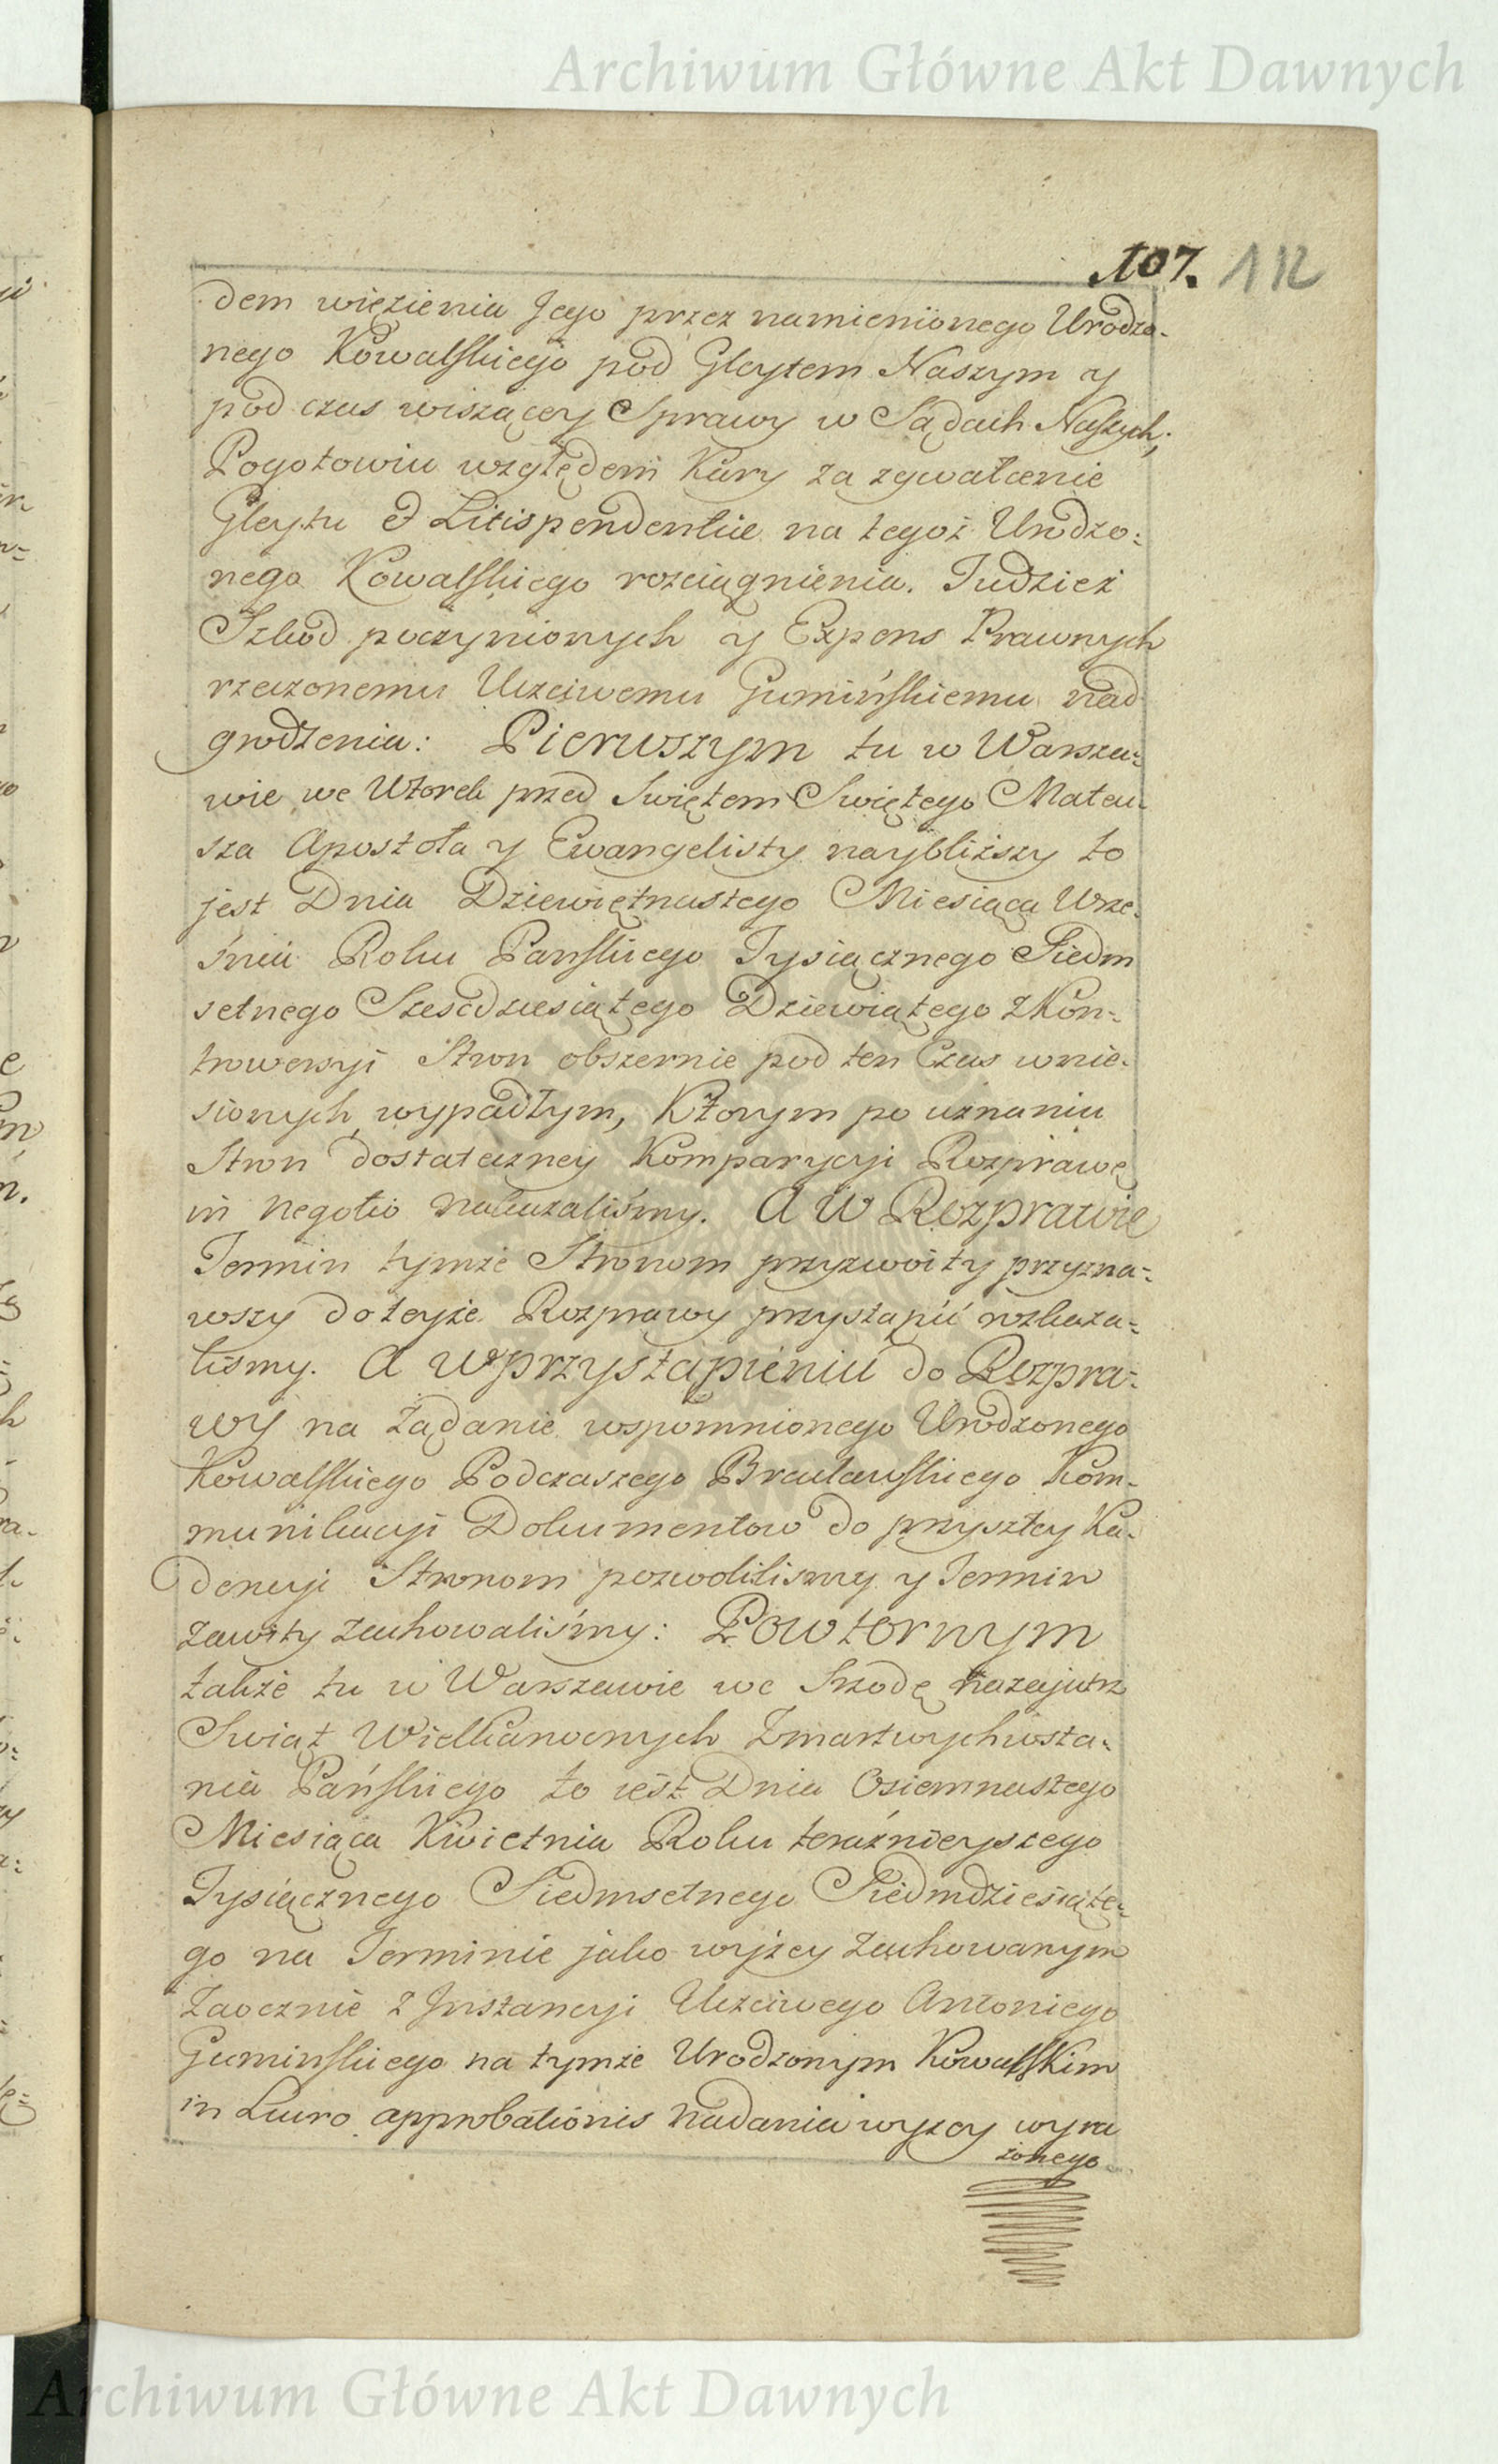 Archiwum Główne Akt Dawnych
107. 112
dem więzienia Jego przez namienionego Urodzo-
nego Kowalskiego pod Gleytem Naszym y
pod czas wiszącey Sprawy w Sądach Naszych;
Pogotowiu względem Kary za zgwałcenie
Gleytu et Litispendentiae na tegoż Urodzo:
nego Kowalskiego rozciągnienia. Tudzież
Szkod poczynionych y Expens Prawnych
rzeczonemu Uczciwemu Gumińskiemu nad
grodzenia: Pierwszym tu w Warsza:
wie we Wtorek przed Swiętem Swiętego Mateu
sza Apostoła y Ewangelisty naybliższy to
jest Dnia Dziewiętnastego Miesiąca Wrze-
śnia Roku Panskiego Tysiącznego Siedm
setnego Szescdziesiątego Dziewiątego z Kon-
trowersyi Stron obszernie pod ten Czas wnie-
sionych wypadłym, Ktorym po uznaniu
Stron dostateczney Komparycyi Rozprawę
in negotio nakazaliśmy. A w Rozprawie
Termin tymże Stronom przyzwoity przyzna-
wszy do teyże Rozprawy przystąpić rozkaza-
liśmy. A w przystąpieniu do Rozpra-
wy na żądanie wspomnionego Urodzonego
Kowalskiego Podczaszego Bracławskiego Kom-
munikacyi Dokumentow do przyszłey Ka-
dencyi Stronom pozwoliliśmy y Termin
zawity zachowaliśmy: Powtornym
także tu w Warszawie we Srzodę nazajutrz
Swiąt Wielkanocnych Zmartwychwsta-
nia Pańskiego to iest Dnia Osiemnastego
Miesiąca Kwietnia Roku teraźnieyszego
Tysiącznego Siedmsetnego Siedmdziesiąte-
go na Terminie jako wyżey zachowanym
Zaocznie z Jnstancyi Uczciwego Antoniego
Guminskiego na tymże Urodzonym Kowalskim
in Lucro approbationis nadania wyżey wyra
żonego
Archiwum Główne Akt Dawnych